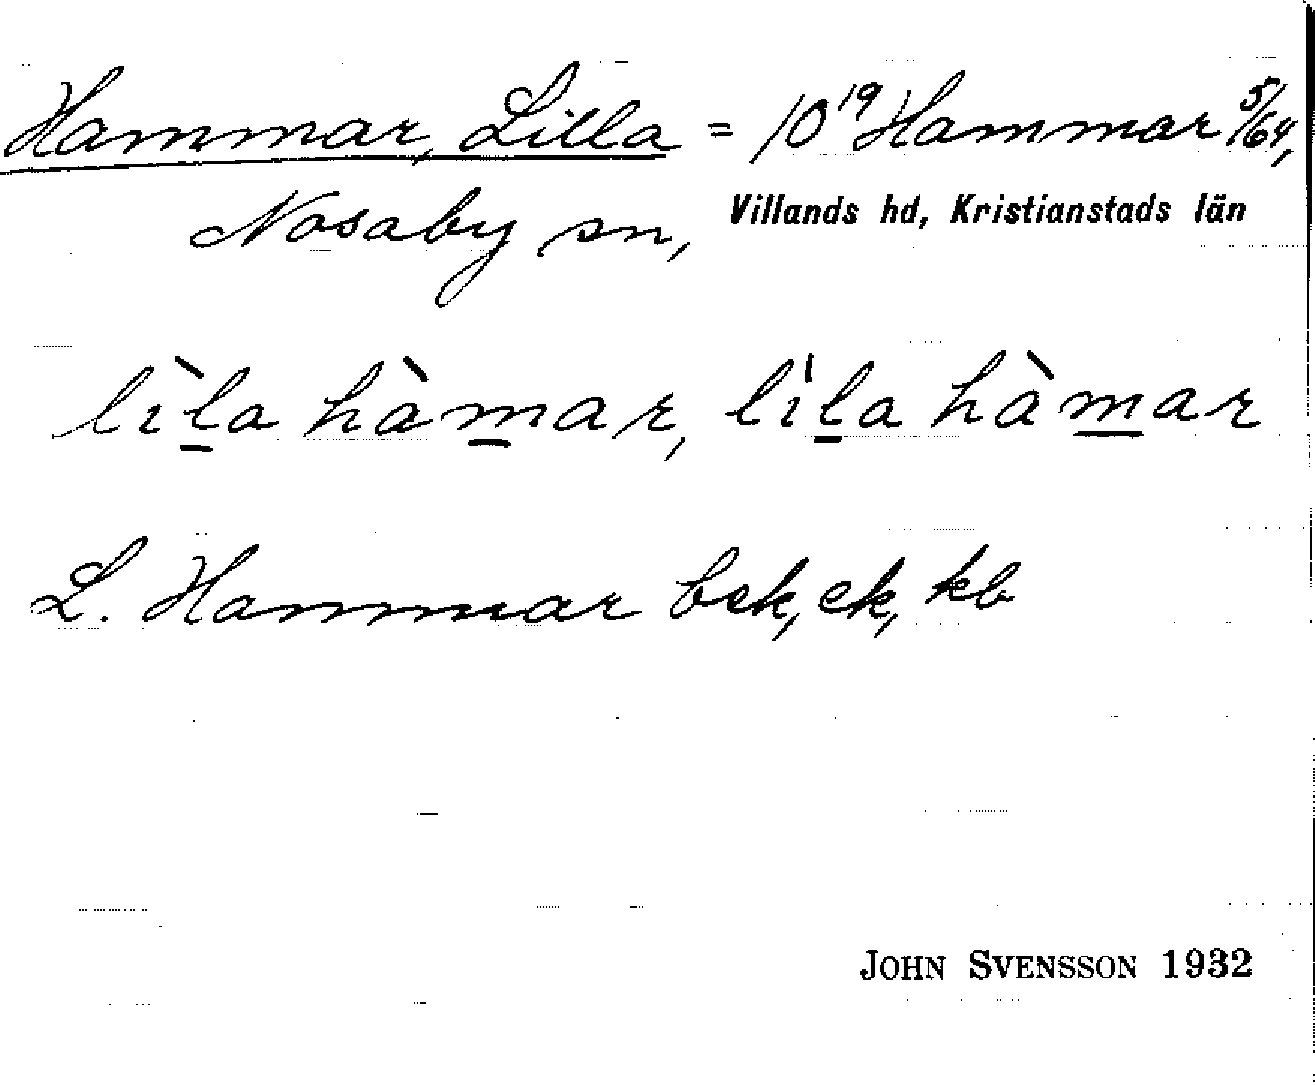 Hammar, Lilla = 10¹⁹ Hammar 5/64,
Nosaby sn, Villands hd, Kristianstads län
lìl̲a hàm̲ar, líl̲a hàm̲ar
L. Hammar bek, ek, kb
JOHN SVENSSON 1932